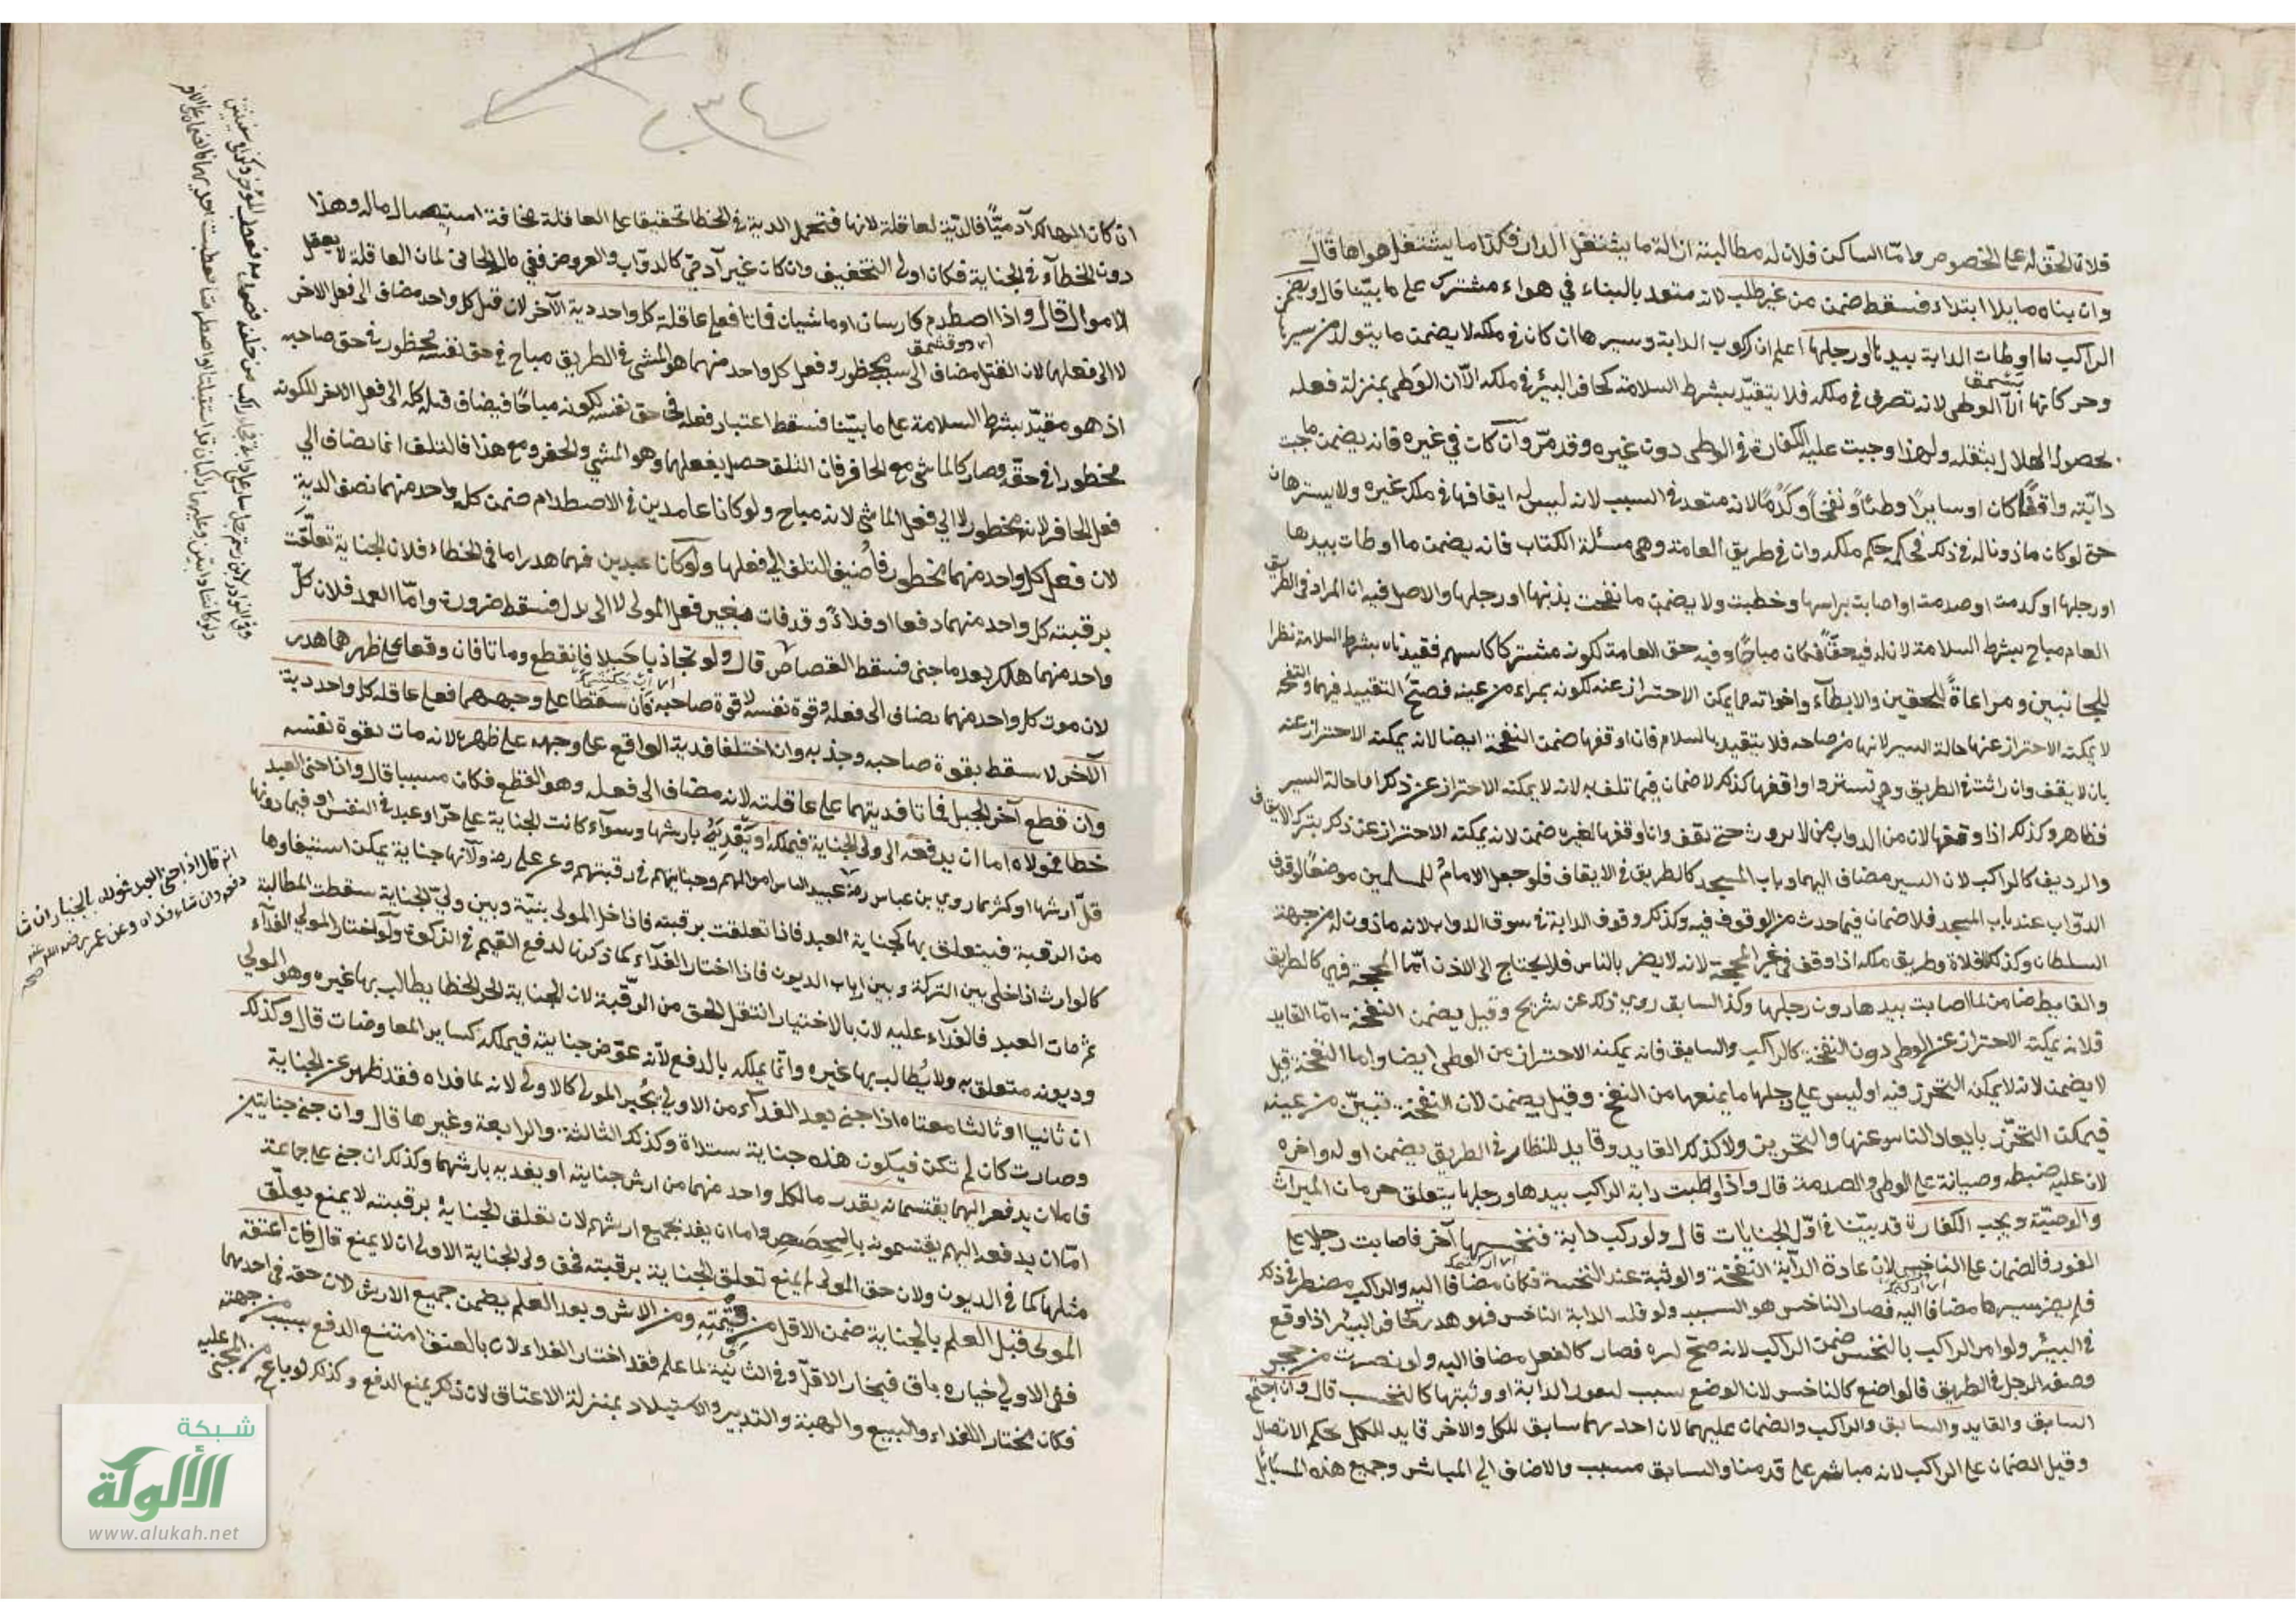 فلان الحق له على الخصوص واما الساكن فلان له مطالبته ازالة ما يشغل الدار فكذا ما يشغل هواها قال
وان بناه مايلا ابتداء فسقط ضمن من غير طلب لانه متعد بالبناء في هواء مشترك على ما بيّنا قال ويضمن
الراكب ما اوطات الدابة بيدها او رجلها اعلم ان ركوب الدابة وسيرها ان كان في ملكه لا يضمن ما يتولد من سيرها
وحركاتها الا الوطى لانه تصرف في ملكه فلا يتقيد بشرط السلامة كحافر البئر في ملكه الا ان الوطى بمنزلة فعله
لحصول الهلاك بثقله ولهذا وجبت عليه الكفارة في الوطى دون غيره وقد مرّ وان كان في غيره فانه يضمن ما جنت
دابته واقفا كان او سايرا وطئا ونفحا وكدما لانه متعد في السبب لانه ليس له ايقافها في ملك غيره ولا يسيرها
حتى لو كان ماذونا له في ذلك فحكمه حكم ملكه وان في طريق العامة وهي مسئلة الكتاب فانه يضمن ما اوطات بيدها
او رجلها او كدمت او صدمت او اصابت براسها وخطبت ولا يضمن ما نفحت بذنبها او رجلها والاصل فيه ان المراد في الطريق
العام مباح بشرط السلامة لان له فيه حقا فكان مباحا وفيه حق العامة لكونه مشتركا فقيدناه بشرط السلامة نظرا
للجانبين ومراعاة للحقين والايطاء واخواته مما يمكن الاحتراز عنه لكونه بمراء من عينه فصح التقييد فيهما والنفحة
لا يمكنه الاحتراز عنها حالة السير لانها من صاحبه فلا يتقيد بالسلام فان اوقفها ضمن النفحة ايضا لانه يمكنه الاحتراز عنه
بان لا يقف وان راثت في الطريق وهي تسير او اوقفها كذلك لا ضمان فيما تلف به لانه لا يمكنه الاحتراز عن ذلك اما حالة السير
فظاهر وكذلك اذا وقفها لان من الدواب من لا يروث حتى يقف وان اوقفها لغيره ضمن لانه يمكنه الاحتراز عن ذلك بترك الايقاف
والرديف كالراكب لان السير مضاف اليهما وباب المسجد كالطريق في الايقاف فلو جعل الامام للمسلمين موضعا لوقوف
الدواب عند باب المسجد فلا ضمان فيما حدث من الوقوف فيه وكذلك وقوف الدابة في سوق الدواب لانه ماذون له من جهة
السلطان وكذلك الفلاة وطريق مكة اذا وقف في غير المحجة لانه لا يضر بالناس فلا يحتاج الى الاذن اما المحجة فهي كالطريق
والقايد ضامن لما اصابت بيدها دون رجلها وكذا السايق روي ذلك عن شريح وقيل يضمن النفحة اما القايد
فلانه يمكنه الاحتراز عن الوطى دون النفحة كالراكب والسايق فانه يمكنه الاحتراز من الوطى ايضا واما النفحة قيل
لا يضمن لانه لا يمكنه التحرز فيه اوليس على رجلها ما يمنعها من النفح وقيل يضمن لان النفحة تبين من عينه
فيمكنه التحرز بابعاد الناس عنها والتحرين ولا كذلك القايد وقايد القطار في الطريق يضمن اوله واخره
لان عليه ضبطه وصيانة على الوطى والصدمة قال واذا وطئت دابة الراكب بيدها ورجلها يتعلق حرمان الميراث
والوصية ويجب الكفارة قد بيّنا في اوّل الجنايات قال ولو ركب دابة فنخسها آخر فاصابت رجلا على
الفور فالضمان على الناخس لان عادة الدآبة النفحة والوثبة عند النخسة فكان مضافا اليه والراكب مضطر في ذلك
فلم يصر سيرها مضافا اليه فصار الناخس هو السبب ولو قتله الدابة الناخس فهو هدر كحافر البئر اذا وقع
في البئر ولو امر الراكب بالنخس ضمن الراكب لانه صح امره فصار كالفعل مضافا اليه ولو نصبت من حجر
وصفه الرجل في الطريق فالواضع كالناخس لان الوضع سبب لنفور الدابة او وثبتها كالنخس قال وان اجتمع
السايق والقايد والسايق والراكب والضمان عليهما لان احدهما سايق للكل والاخر قايد للكل بحكم الاتصال
وقيل الضمان على الراكب لانه مباشر على قدمنا والسايق مسبب والاضاف الى المباشر وجميع هذه المسايل
ان كان الهالك آدميّا فالديّة لعاقلة لانها فتحمل الدية في الخطا تخفيفا على العاقلة مخافة استيصال ماله وهذا
دون الخطآء في الجناية فكان اولى التخفيف وان كان غير آدمى كالدوّاب والعروض ففي مال الجانى لمان العاقلة لا يعقل
الاموال قال واذا اصطدم فارسان او ماشيان فماتا فعلى عاقلة كل واحد دية الآخر لان قتل كل واحد مضاف الى فعل الاخر
لا الى فعلها لان القتل مضاف الى سبب محظور وفعل كل واحد منهما هو المشى في الطريق مباح في حق نفسه محظور في حق صاحبه
اذ هو مقيّد بشرط السلامة على ما بيّنا فسقط اعتبار فعله في حق نفسه لكونه مباحا فيضاف قتله كله الى فعل الاخر لكونه
محظورا في حقّه وصار كالماشى مع الحافر فان التلف حصل بفعلهما وهو المشي والحفر ومع هذا فالتلف انما يضاف الي
فعل الحافر لانه محظور لا الي فعل الماشي لانه مباح ولو كانا عامدين في الاصطدام ضمن كل واحد منهما نصف الدية
لان فعل كل واحد منهما محظور فاُضيف التلف الى فعلهما ولو كانا عبدين فهما هدر اما فى الخطاء فلان الجناية تعلّقت
برقبته كل واحد منهما دفعا او فداءً وقد فات بغير فعل المولى لا الى بدل فسقط ضرورة وامّا العمد فلان كلّ
واحد منهما هلك بعد ما جنى فسقط القصاص قال ولو تجاذبا حَبلا فانقطع وماتا فان وقعا على ظهرهما هدر
لان موت كل واحد منهما يضاف الى فعله وقوة نفسه لا قوة صاحبه فان سقطا على وجههما فعلى عاقلة كل واحد دية
الآخر لا سقط بقوة صاحبه وجذبه وان اختلفا فدية الواقع على وجهه على ظهره لانه مات بقوة نفسه
وان قطع آخر الحبل فماتا فديتهما على عاقلته لانه مضاف الى فعله وهو القطع فكان مسببا قال واذا جنى العبد
خطا فمولاه اما ان يدفعه الى ولي الجناية فيملكه او يَفديه بارشها وسوآء كانت الجناية على حرّ او عبد في النفس او فيما دونها
قلّ ارشها او كثر لما روي بن عباس رضه عبيد الناس اموالهم وجنايتهم في رقبتهم وعن على رضه ولانها جناية يمكن استيفاوها
من الرقبة فيتعلق بها كجناية العبد فاذا تعلقت برقبته فاذا خلى المولى بنيّة وبين ولي الجناية سقطت المطالبة
كالوارث اذا خلى بين التركة وبين ارباب الديون فاذا اختار الفدآء كما ذكرنا لدفع القيم في الزكوة ولو اختار المولى الفدآء
ثم مات العبد فالفدآء عليه لان بالاختيار انتقل الحق من الرقبة لان الجناية الحر الخطا يطالب بها غيره وهو المولى
وديونه متعلق به ولا يُطالب بها غيره وانّما يملكه بالدفع لانه عوّض جنايته فيملكه كساير المعاوضات قال وكذلك
ان ثانيا او ثالثا معناه اذا جنى بعد الفدآء من الاولى يُخير المولى كالاولى لانه لما فداه فقد ظهر عن الجناية
وصارت كان لم تكن فيكون هذه جناية مبتداة وكذلك الثالثة والرابعة وغيرها قال وان جنى جنايتين
فاما ان يدفعه اليهما يقتسمانه بقدر ما لكل واحد منهما من ارش جنايته او يفديه بارشهما وكذلك ان جنى على جماعة
امّا ان يدفعه اليهم يقتسمونه بالحِصَصِ واما ان يفديه بجميع ارشهم لان تعلق الجناية برقبته لا يمنع يعلّق
مثلها كما في الديون ولان حق المولى لم يمنع تعلق الجناية برقبته فحق ولى الجناية الاولى ان لا يمنع قال فان اعتقه
المولى قبل العلم بالجناية ضمن الاقل من قيمته ومن الارش وبعد العلم يضمن جميع الارش لان حقه في احدهما
ففي الاولى خياره باق فيختار الاقلّ وفي الثانية لما علم فقد اختار الفداء لان بالعتق امتنع الدفع بسبب من جهته
فكان مختار اللفداء والبيع والهبة والتدبير والاستيلاد بمنزلة الاعتاق لان ذلك يمنع الدفع وكذلك لو باعه من المجنى عليه
انه قال اذا جنى العبد فمولاه بالخيار ان شا
دفعه وان شاء فداه وعن عمر رضي الله عنه
شبكة
الألوكة
www.alukah.net